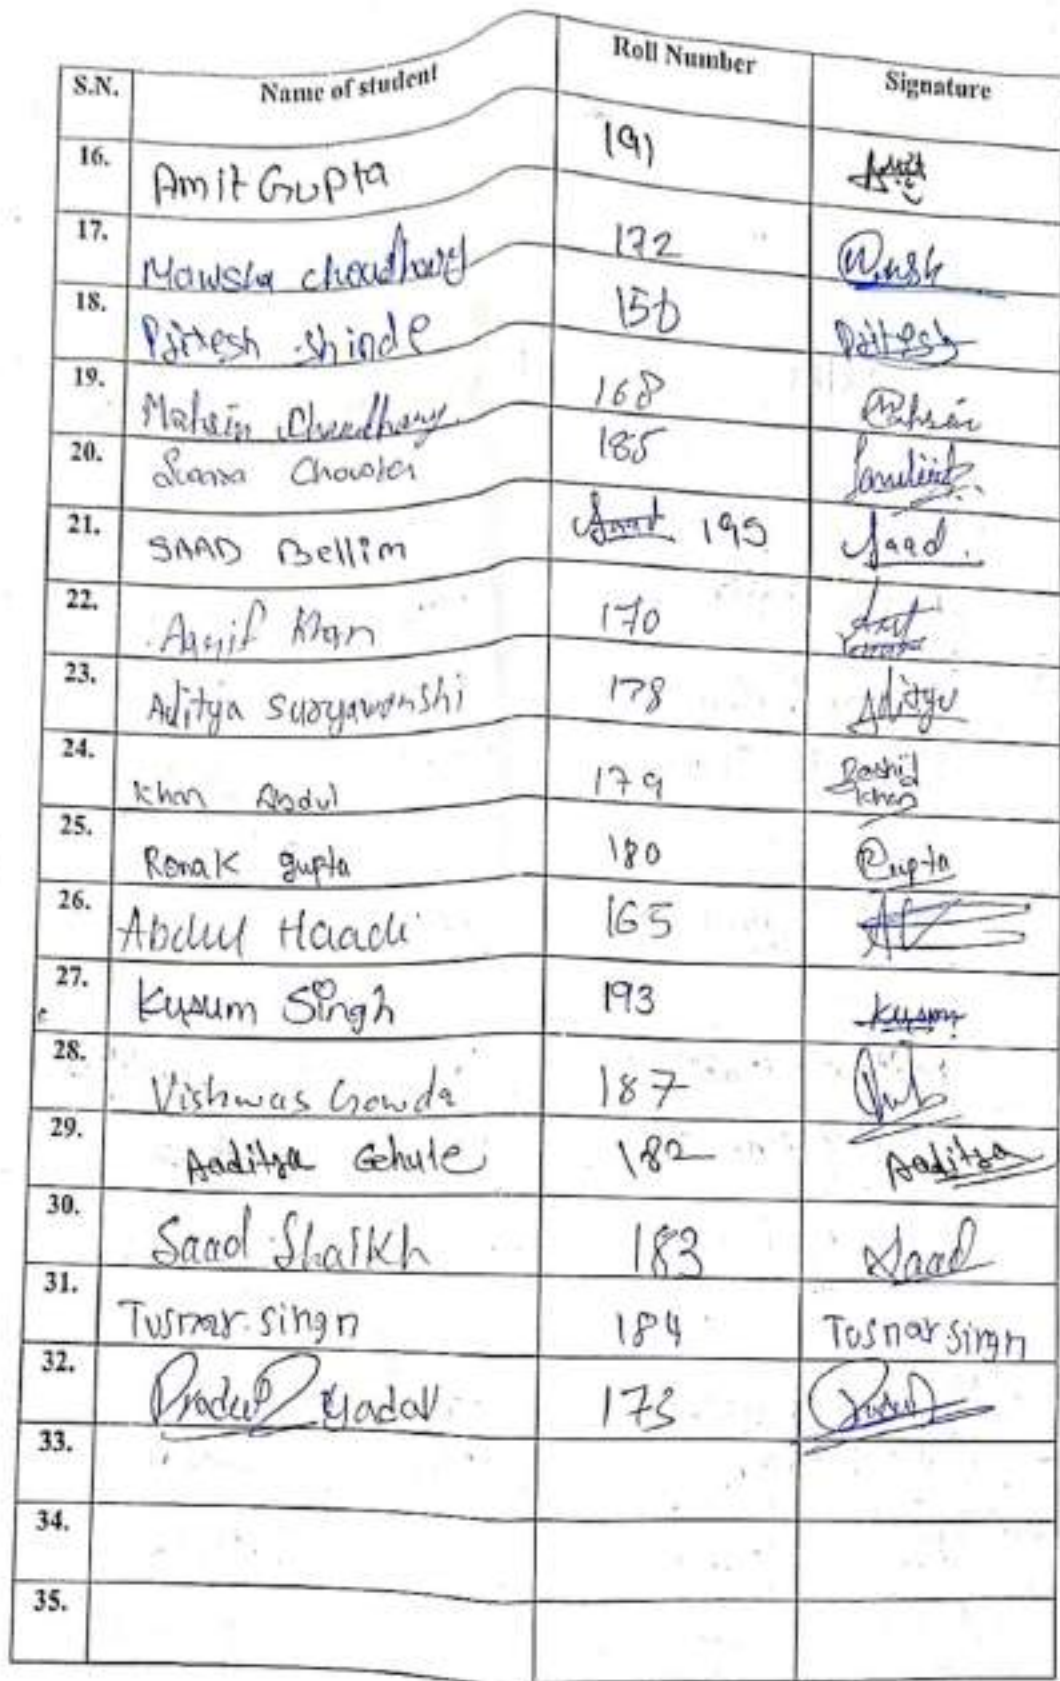 S.N. Name of student Roll Number Signature
16. Amit Gupta 191 Amit
17. Mawsha choudhary 172
18. Pritesh Shinde 156 Pritesh
19. Mahsin Choudhary 168 Mahsin
20. 185
21. SAAD Bellim Saad 195 Saad.
22. Aaqif Khan 170
23. Aditya Suryawanshi 178 Aditya
24. Khan Abdul 179 Rashid Khan
25. Ronak gupta 180 Gupta
26. Abdul Haadi 165
27. Kusum Singh 193 Kusum
28. Vishwas Gowda 187
29. Aaditya Gehule 182 Aaditya
30. Saad Shaikh 183 Saad
31. Tusnar singn 184 Tusnar singn
32. Pradeep Yadav 173
33.
34.
35.